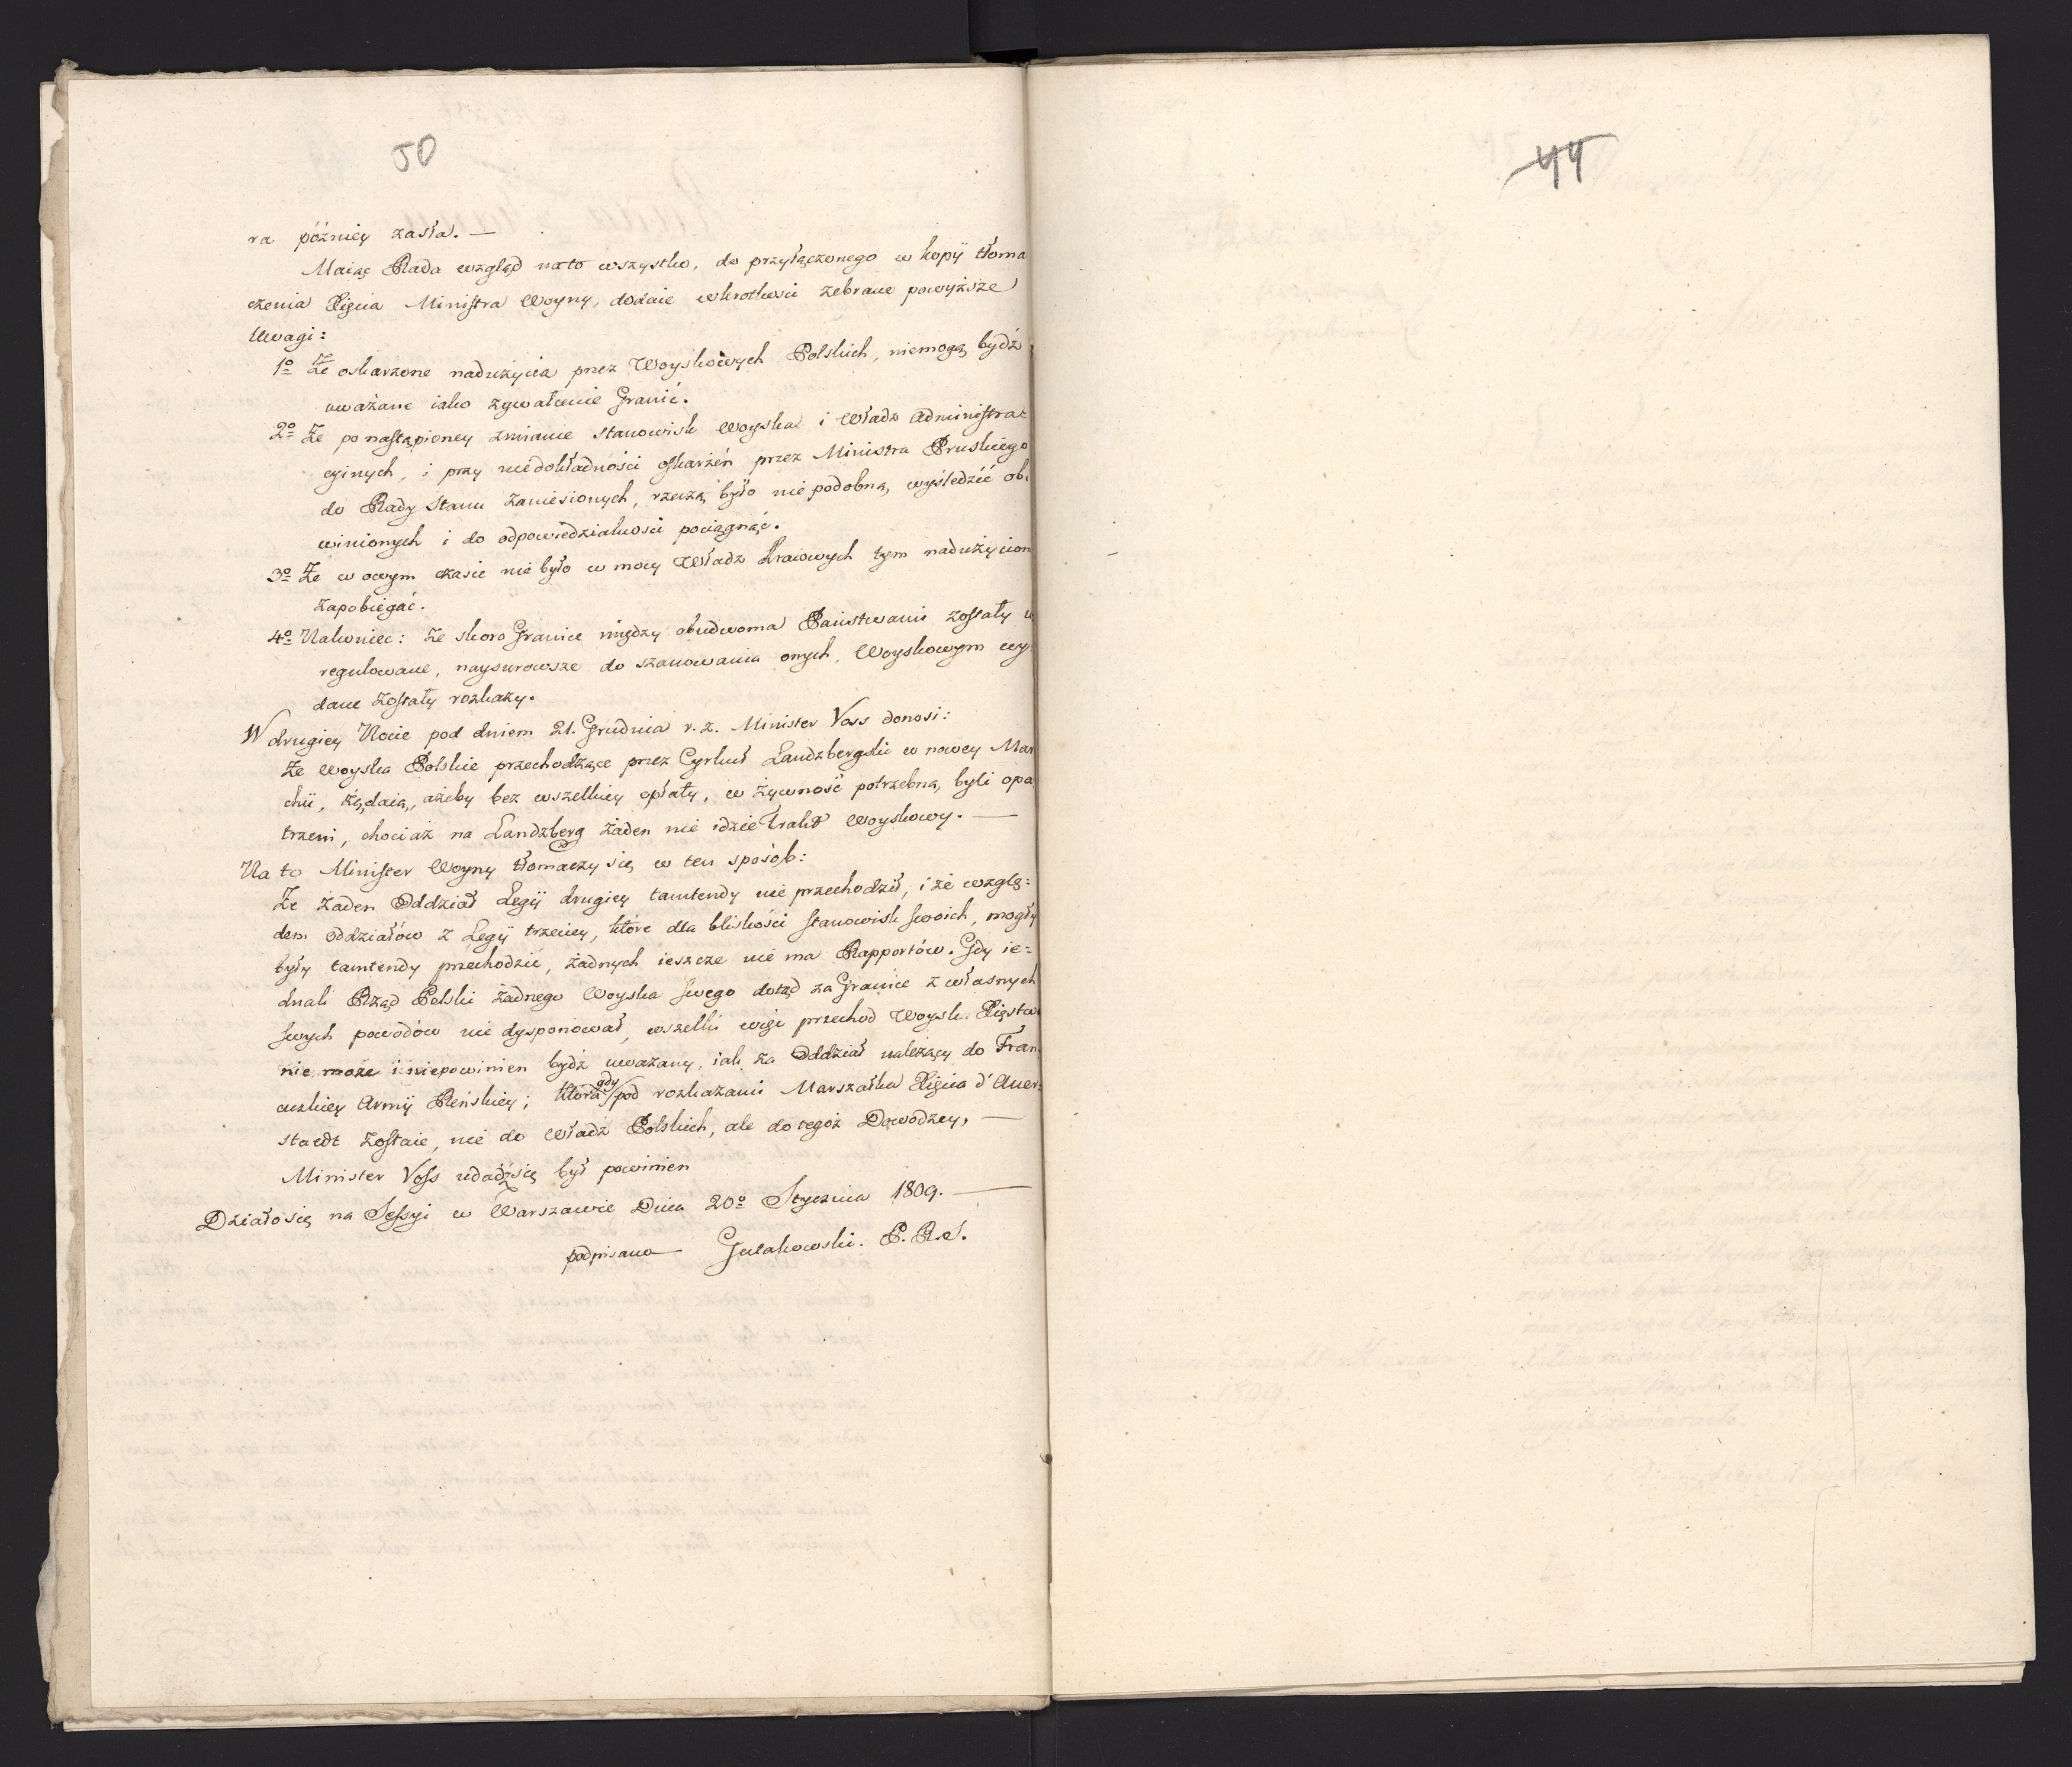 50
ra późniey zasła. —
Maiąc Rada wzgląd na to wszystko, do przyłączonego w kopij tłoma
czenia Xięcia Ministra Woyny, dodaie w krotkosci zebrane powyższe
Uwagi:
1º Że oskarzone nadużycia przez Woyskowych Polskich, niemogą bydź
uważane iako zgwałcenie Granic.
2º Że po nastąpioney zmianie stanowisk Woyska i Władz Administra-
cyinych, i przy niedokładności oskarżeń przez Ministra Pruskiego
do Rady Stanu zaniesionych, rzeczą było nie podobną, wyśledzić ob
winionych i do odpowiedzialności pociągnąć.
3º Że w owym czasie nie było w mocy Władz Kraiowych tym nadużyciom
zapobiegać.
4º Nakoniec: że skoro Granice między obudwoma Państwami zostały u
regulowane, naysurowsze do szanowania onych, Woyskowym wy
dane zostały rozkazy.
W drugiey Nocie pod dniem 21. Grudnia r. z. Minister Voss donosi:
Że Woyska Polskie przechodzące przez Cyrkuł Landzbergski w nowey Mar
chii, żądaią, ażeby bez wszelkiey opłaty, w żywność potrzebną, byli opa
trzeni, chociaż na Landzberg żaden nie idzie Trakt Woyskowy. —
Na to Minister Woyny tłomaczy się w ten sposób:
Że żaden Oddział Legij drugiey tamtendy nie przechodził, i że wzglę-
dem Oddziałów z Legij trzeciey, które dla bliskości stanowisk swoich, mogły
były tamtendy przechodzić, żadnych ieszcze nie ma Rapportów. Gdy ie-
dnak Rząd Polski żadnego Woyska swego dotąd za Granice z własnych
swych powodów nie dysponował, wszelki więc przechod Woyska Xięstwa
nie może i niepowinien bydź uważany, iak za Oddział należący do Fran
cuzkiey Armij Reńskiey; która gdy pod rozkazami Marszałka Xięcia d'Auer-
staedt zostaie, nie do Władz Polskich, ale do tegoż Dowodzcy, —
Minister Voss udadź się był powinien
Działo się na Sessyi w Warszawie Dnia 20º Stycznia 1809. —
podpisano Gutakowski. P. R. S.
44